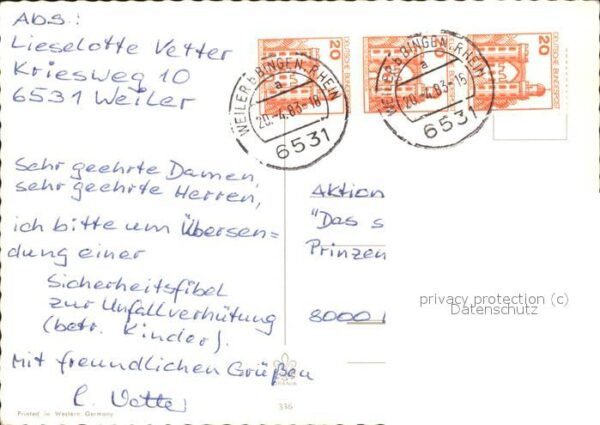 Abs.:
Lieselotte Vetter
Kriesweg 10
6531 Weiler
20 DEUTSCHE BUNDESPOST
20 DEUTSCHE BUNDESPOST
WEILER b BINGEN, RHEIN
a
20.-4.83-16
6531
WEILER b BINGEN, RHEIN
a
20.-4.83-16
6531
Sehr geehrte Damen,
sehr geehrte Herren,
ich bitte um Übersen=
dung einer
Sicherheitsfibel
zur Unfallverhütung
(betr. Kinder).
Mit freundlichen Grüßen
L. Vetter
Aktion
"Das s
Prinzen
8000
privacy protection (c)
Datenschutz
Printed in Western Germany
336